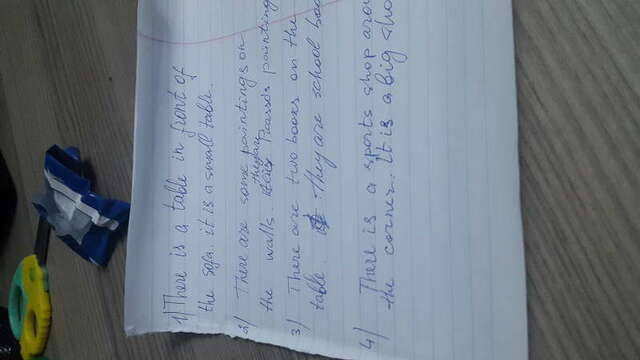 1) There is a table in front of
the sofa. it is a small table.
2) There are some paintings on
they are
the walls Picasso's painting
3) There are two books on the
table. They are school boo
4) There is a sports shop arou
the corner. it is a big sho